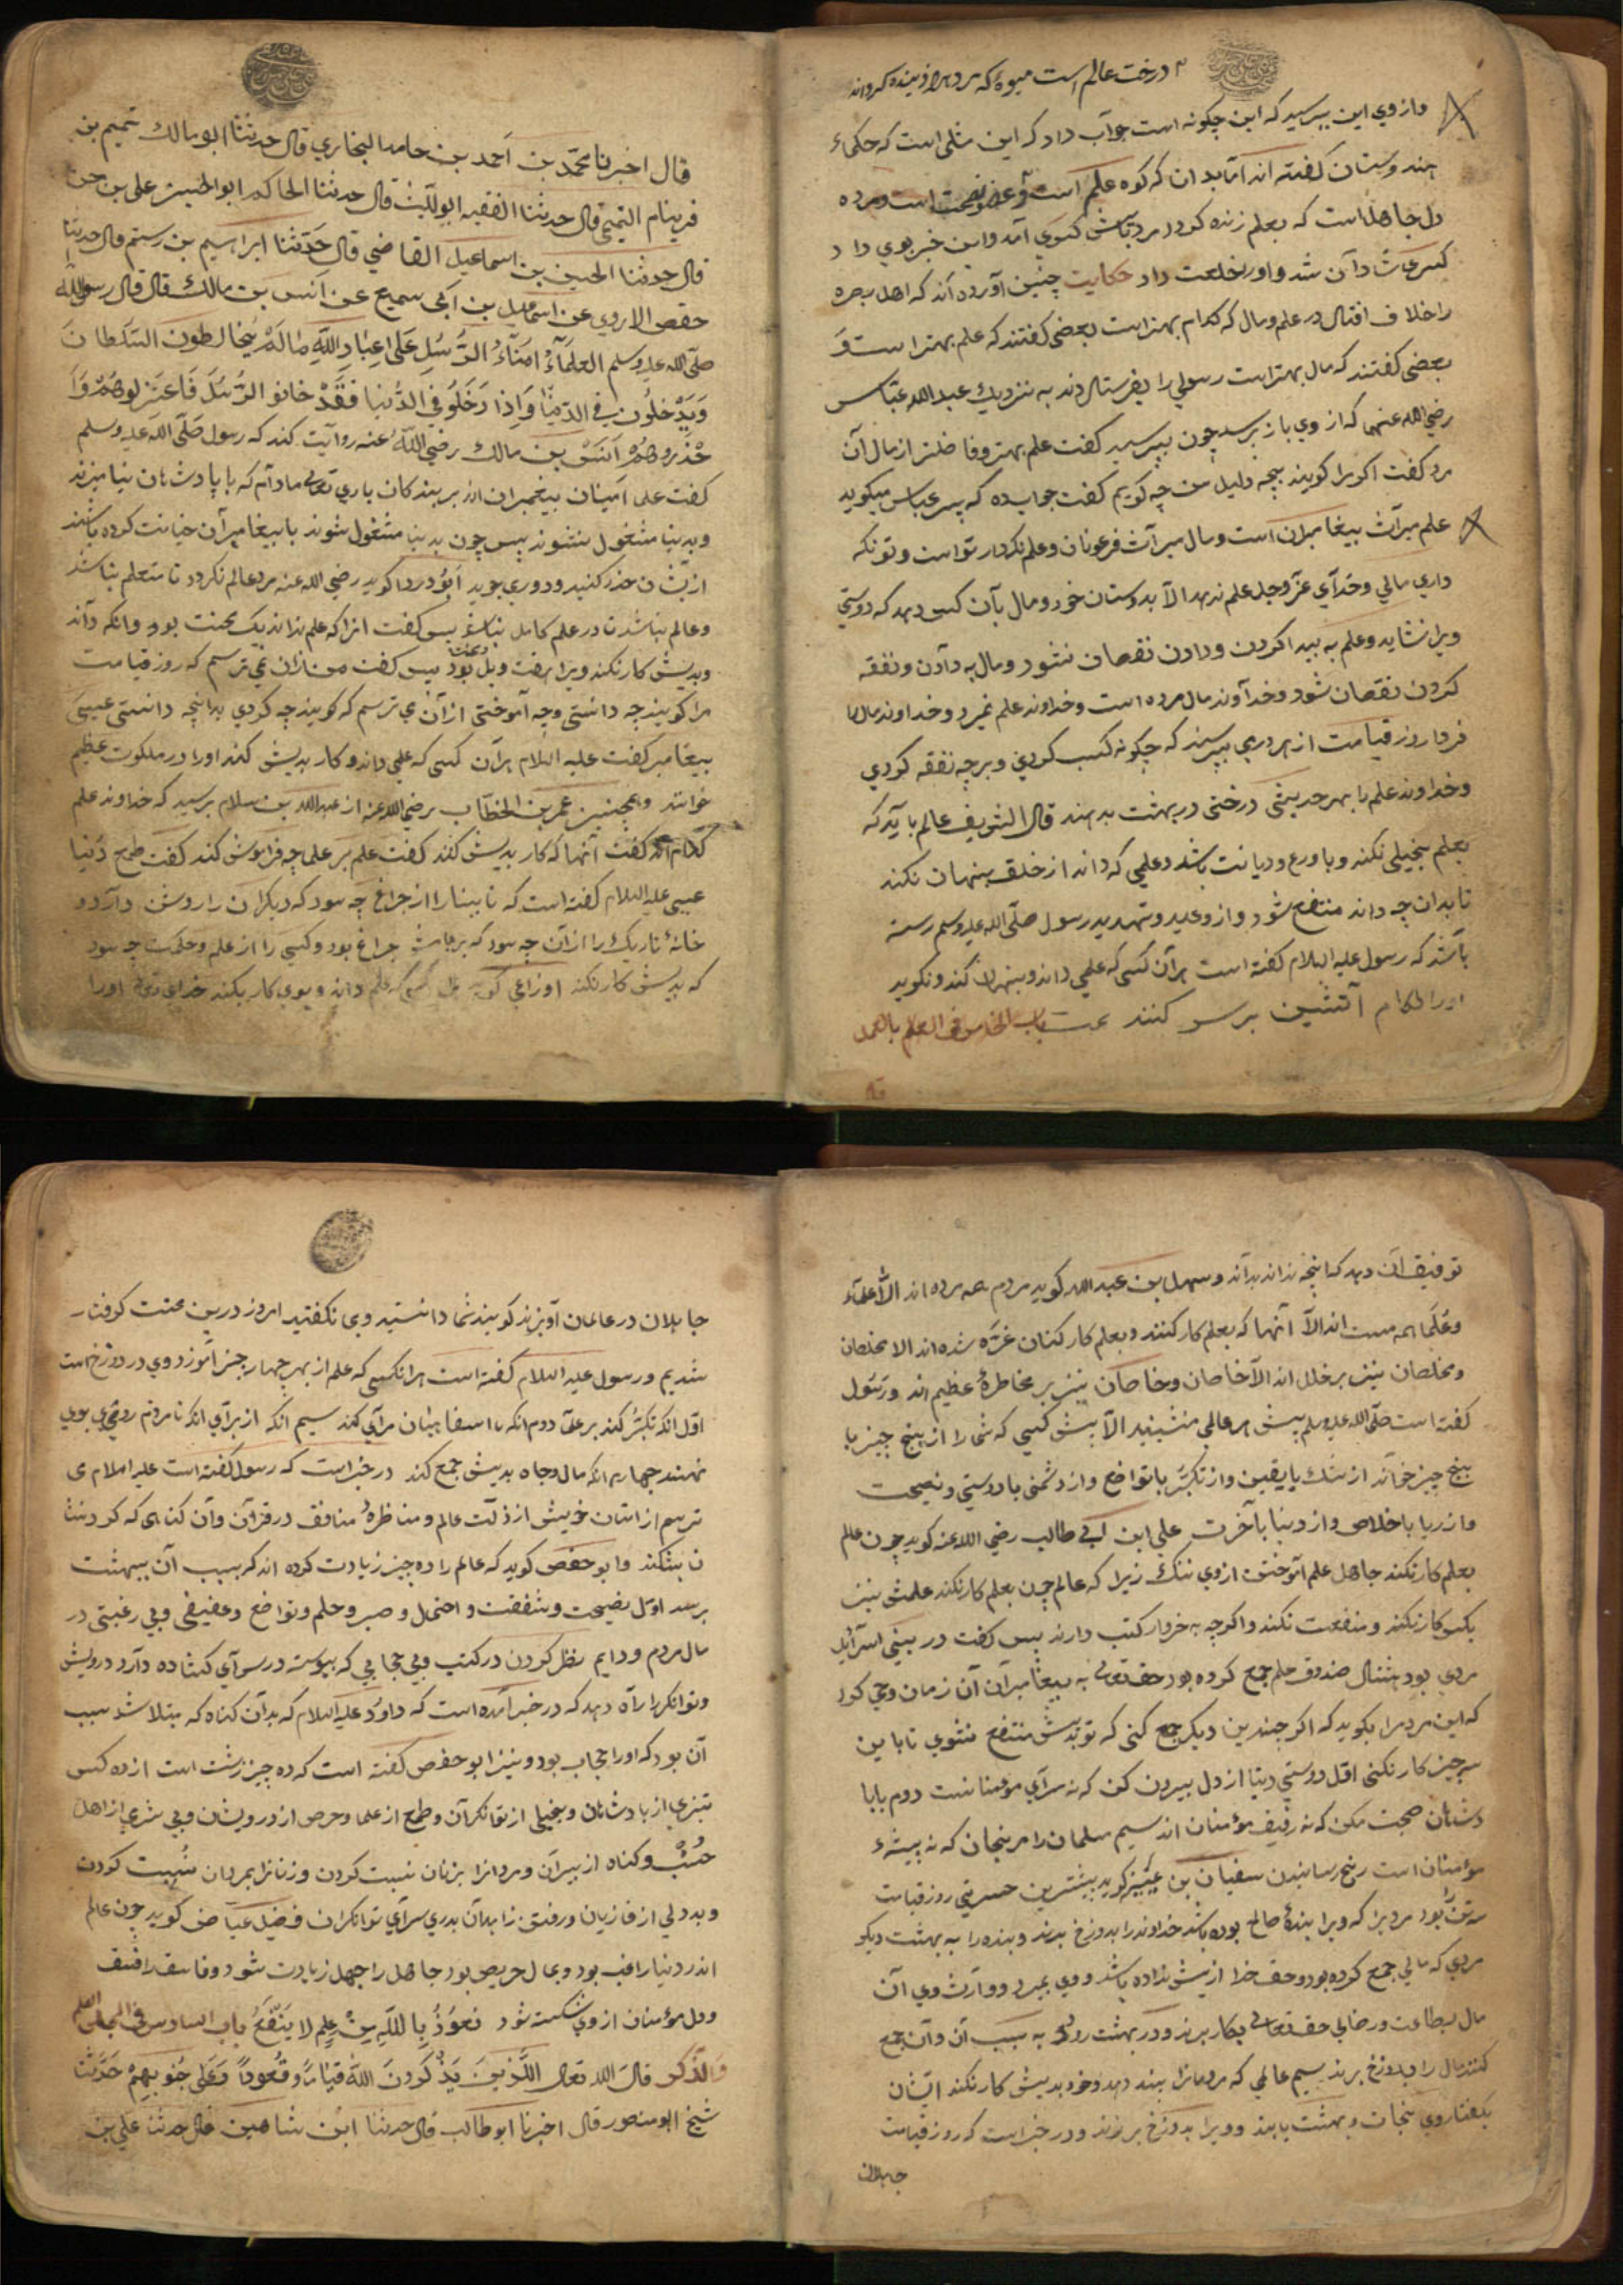 درخت عالم است میوه که مردم را زینده کرداند
و از وي این بپرسید که این چکونه است جواب داد که این مثلی است که حکماء
هندوستان کفته اند اما بدان که کوه علم است و نصیحت است و مرده
دل جاهل است که بعلم زنده کردد مرد پیش کسری آمد و این خبر بوي داد
کسری شادان شد و اورا خلعت داد حکایت چنین آورده اند که اهل بصره
را خلاف افتاد در علم و مال که کدام بهتر است بعضی کفتند که علم بهتر است و
بعضی کفتند که مال بهتر است رسولی را بفرستادند به نزدیك عبدالله عباس
رضی الله عنهما که از وي باز پرسد چون بپرسید کفت علم بهتر و فاضلتر از مال آن
مرد کفت اکر مرا کویند بچه دلیل من چه کویم کفت جواب ده که پسر عباس میکوید
علم میراث پیغامبران است و مال میراث فرعونان و علم نکهدار تو است و تو نکه
داري مالي و خداي عزوجل علم ندهد الا بدوستان خود و مال بآن کس دهد که دوستي
ویرا نشاید و علم به پیدا کردن و دادن نقصان نشود و مال به دادن و نفقه
کردن نقصان شود و خداوند مال مرده است و خداوند علم نمیرد و خداوند مال را
فردا روز قیامت از هر درمي بپرسند که چکونه کسب کردي و بر چه نفقه کردي
و خداوند علم را بهر حدیثی درختی در بهشت بدهند قال الشریف عالم باید که
بعلم بخیلی نکند و با ورع و دیانت باشد و علمي که داند از خلق پنهان نکند
تا بدان چه داند منتفع شود و از وعید و تهدید رسول صلی الله علیه وسلم رسته
باشد که رسول علیه السلام کفته است هر آن کسی که علمی داند و پنهان کند و نکوید
اورا لکام آتشین بر سر کنند باب الخامس فی العلم بالعمل
قال اخبرنا محمد بن احمد بن حامد البخاري قال حدثنا ابو مالك تمیم بن
فرینام التمیمي قال حدثنا الفقیه ابو اللیث قال حدثنا الحاکم ابو الحسن علی بن
قال حدثنا الحسین بن اسماعیل القاضي قال حدثنا ابراهیم بن رستم قال حدثنا
حفص الاروي عن اسماعیل بن ابي سمیع عن انس بن مالك قال قال رسول الله
صلی الله علیه وسلم العلماء امناء الرسل علی عباد الله ما لم یخالطون السلطان
ویدخلون في الدنیا واذا دخلو في الدنیا فقد خانو الرسل فاعتزلوهم و
حذروهم انس بن مالك رضي الله عنه روایت کند که رسول صلی الله علیه وسلم
کفت علما امینان پیغمبران اند بر بندکان باري تعالی مادام که با پادشاهان نیامیزند
و بدنیا مشغول نشوند پس چون بدنیا مشغول شوند با پیغامبران خیانت کرده باشند
از یشان حذر کنید و دوري جوید ابو دردا کوید رضي الله عنه مرد عالم نکردد تا متعلم نباشد
و عالم نباشد تا در علم کامل نباشد پس کفت انرا که علم نداند یک محنت بود و انکه داند
و بدیش کار نکند ویرا هفت ویل بود پس کفت من ازان نمي ترسم که روز قیامت
مرا کویند چه دانستی و چه آموختی از آن مي ترسم که کویند چه کردي بدانچه دانستی عیسی
پیغامبر کفت علیه السلام هر آن کسی که علمی داند و کار بدیش کند اورا در ملکوت عظیم
خوانند و همچنین عمر بن الخطاب رضي الله عنه از عبدالله بن سلام پرسید که خداوند علم
کدام اند کفت آنها که کار بدیش کنند کفت علم بر علما چه فراموش کند کفت طمع دنیا
عیسی علیه السلام کفته است که نابینا را از چراغ چه سود که دیکران را روشن دارد و
خانهٔ تاریك را از آن چه سود که بر بامش چراغ بود و کسی را از علم و حکمت چه سود
که بدیش کار نکند اوزاعي کوید هر کسی که علم داند و بوي کار بکند خداي تعالی اورا
توفیق ان دهد که انچه نداند بداند و سهل بن عبدالله کوید مردم همه مرده اند الا علماء
و علما همه مست اند الا آنها که بعلم کار کنند و بعلم کار کنان غره شده اند الا مخلصان
و مخلصان نیز بر خلل اند الا خاصان و خاصکان نیز بر مخاطرهٔ عظیم اند و رسول
کفته است صلی الله علیه وسلم پیش هر عالمي منشینید الا پیش کسی که شما را از پنج چیز با
پنج چیز خواند از شك با یقین و از تکبر با تواضع و از دشمنی با دوستي و نصیحت
و از ریا با خلاص و از دنیا با آخرت علي ابن ابي طالب رضي الله عنه کوید چون عالم
بعلم کار نکند جاهل علم آموختن از وي ننك زیرا که عالم چون بعلم کار نکند علمش نیز
بکس کار نکند و منفعت نکند و اکرچه به خروار کتب دارند پس کفت در بنی اسرائیل
مردي بود هشتاد صندوق علم جمع کرده بود حق تعالی به پیغامبران آن زمان وحي کرد
که این مردم را بکوید که اکر چندین دیکر جمع کنی که تو بدیش منتفع نشوي تا با این
سه چیز کار نکنی اول دوستي دنیا از دل بیرون کن که نه سرآي مومنانست دوم با پا
دشاهان صحبت مکن که نه رفیق مؤمنان اند سیم مسلمان را مرنجان که نه پیشهٔ
مؤمنان است رنج رسانیدن سفیان بن عیینه کوید بیشترین حسرتي روز قیامت
سه تن را بود مردیرا که ویرا بندهٔ صالح بوده باشد خداوند را بدوزخ برند و بنده را به بهشت دیکر
مردي که مالي جمع کرده بود و حق خدا ازیش نداده باشد و وي بمیرد و وارث وي آن
مال بطاعت و رضای حق تعالی بکار برند و در بهشت رود به سبب آن و آن جمع
کننده مال را بدوزخ برند سیم عالمي که مردمانرا پند دهد و خود بدیش کار نکند ایشان
بکفتار وي نجات و بهشت یابند و ویرا بدوزخ برند و در خبر است که روز قیامت
جاهلان
جاهلان در عالمان آویزند کویند شما دانستید و بما نکفتید امروز درین محنت کرفتار
شدیم و رسول علیه السلام کفته است هر انکسی که علم از بهر چهار چیز آموزد وي در دوزخ است
اول انکه تکبر کند بر علما دوم انکه با سفاهیان مرآیي کند سیم انکه از برآي انکه تا مردم روي بوي
نهند چهارم انکه مال و جاه بدیش جمع کند در خبر است که رسول کفته است علیه السلام مي
ترسم از امتان خویش از ذلت عالم و مناظرهٔ منافق در قرآن و آن کناهی که کردنشا
ن بشکند و ابو حفص کوید که عالم را ده چیز زیادت کرده اند که بسبب آن ببهشت
برسد اول نصیحت و شفقت و احتمال و صبر و حلم و تواضع و عفیفي و بي رغبتی در
مال مردم و دایم نظر کردن در کتب و بي حجابي که پیوسته در سرآي کشاده دارد درویش
و توانکر را راه دهد که در خبر آمده است که داود علیه السلام که بدان کناه که مبتلا شد سبب
آن بود که اورا حجاب بود و نیز ابو حفص کفته است که ده چیز زشت است از ده کس
تیزي از پادشاهان و بخیلي از توانکران و طمع از علما و حرص از درویشان و بي شرمي از اهل
حسب و کناه از پیران و مردانرا بزنان نسبت کردن و زنانرا بمردان شبیت کردن
و بددلي از غازیان و رفتن زاهدان بدر سرآي توانکران فضیل عیاض کوید چون عالم
اندر دنیا راغب بود و بمال حریص بود جاهل را جهل زیادت شود و فاسق را فسق
و دل مؤمنان از وي شکسته شود نعوذ بالله من علم لا ینفع باب السادس في المجلس العلم
والذکر قال الله تعالی الذین یذکرون الله قیاما وقعودا وعلی جنوبهم حدثنا
شیخ ابو منصور قال اخبرنا ابو طالب قال حدثنا ابن شاهین قال حدثنا علي بن